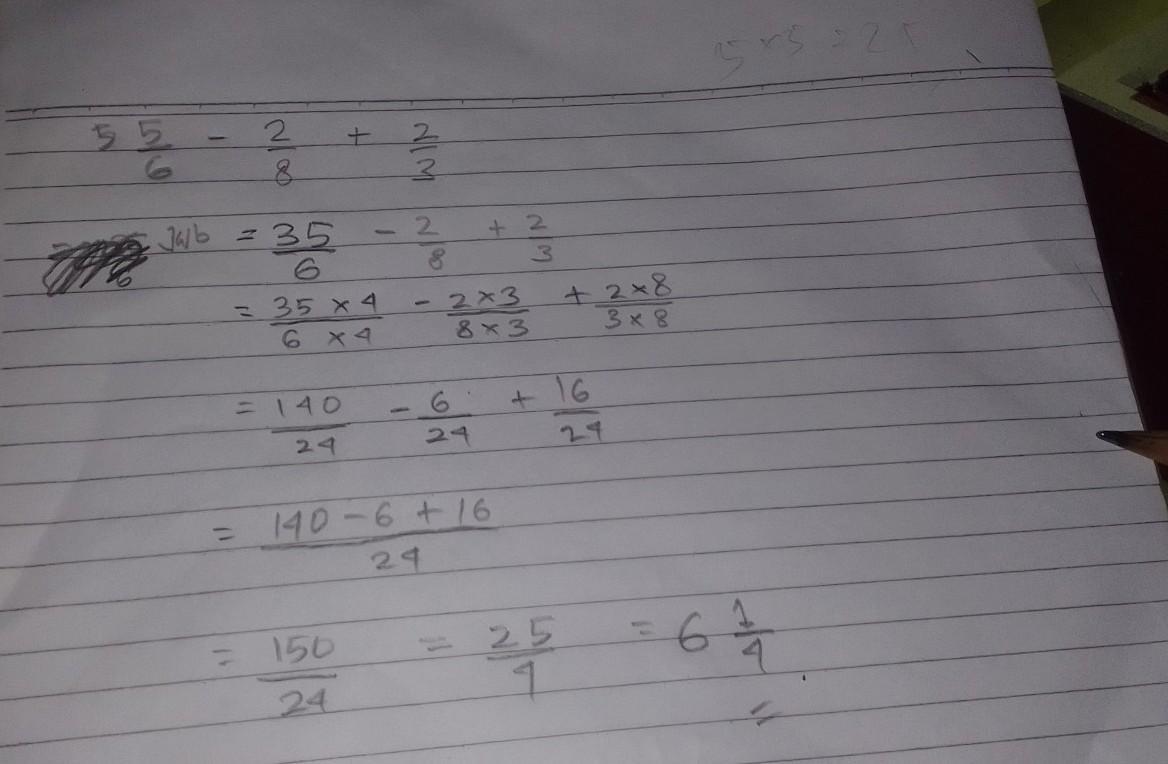 5 × 5 = 25
5 5/6 - 2/8 + 2/3
Jwb = 35/6 - 2/8 + 2/3
= 35 × 4/6 × 4 - 2 × 3/8 × 3 + 2 × 8/3 × 8
= 140/24 - 6/24 + 16/24
= 140 - 6 + 16/24
= 150/24 = 25/4 = 6 1/4